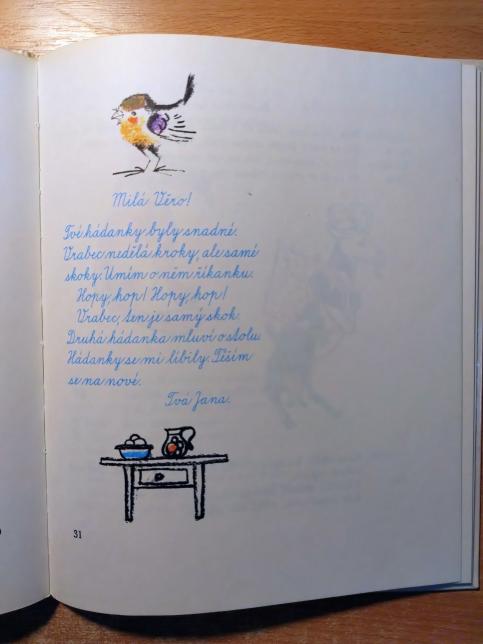 Milá Věro!
Tvé hádanky byly snadné.
Vrabec nedělá kroky, ale samé
skoky. Umím o něm říkanku.
Hopy, hop! Hopy, hop!
Vrabec, ten je samý skok.
Druhá hádanka mluví o stolu.
Hádanky se mi líbily. Těším
se na nové.
Tvá Jana.
31